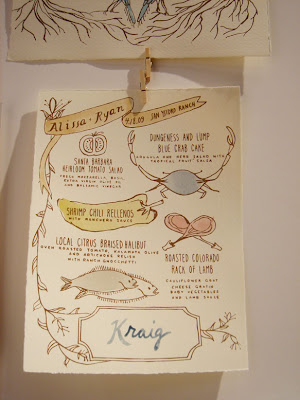 Alissa · Ryan
SAN YSIDRO RANCH
SANTA BARBARA
HEIRLOOM TOMATO SALAD
FRESH MOZZARELLA, BASIL,
EXTRA VIRGIN OLIVE OIL
AND BALSAMIC VINEGAR
DUNGENESS AND LUMP
BLUE CRAB CAKE
ARUGULA AND HERB SALAD WITH
TROPICAL FRUIT SALSA
SHRIMP CHILI RELLENOS
WITH RANCHERO SAUCE
LOCAL CITRUS BRAISED HALIBUT
OVEN ROASTED TOMATO, KALAMATA OLIVE
AND ARTICHOKE RELISH
WITH GNOCCHETTI
ROASTED COLORADO
RACK OF LAMB
CAULIFLOWER GOAT
CHEESE GRATIN
BABY VEGETABLES
AND LAMB SAUCE
Kraig